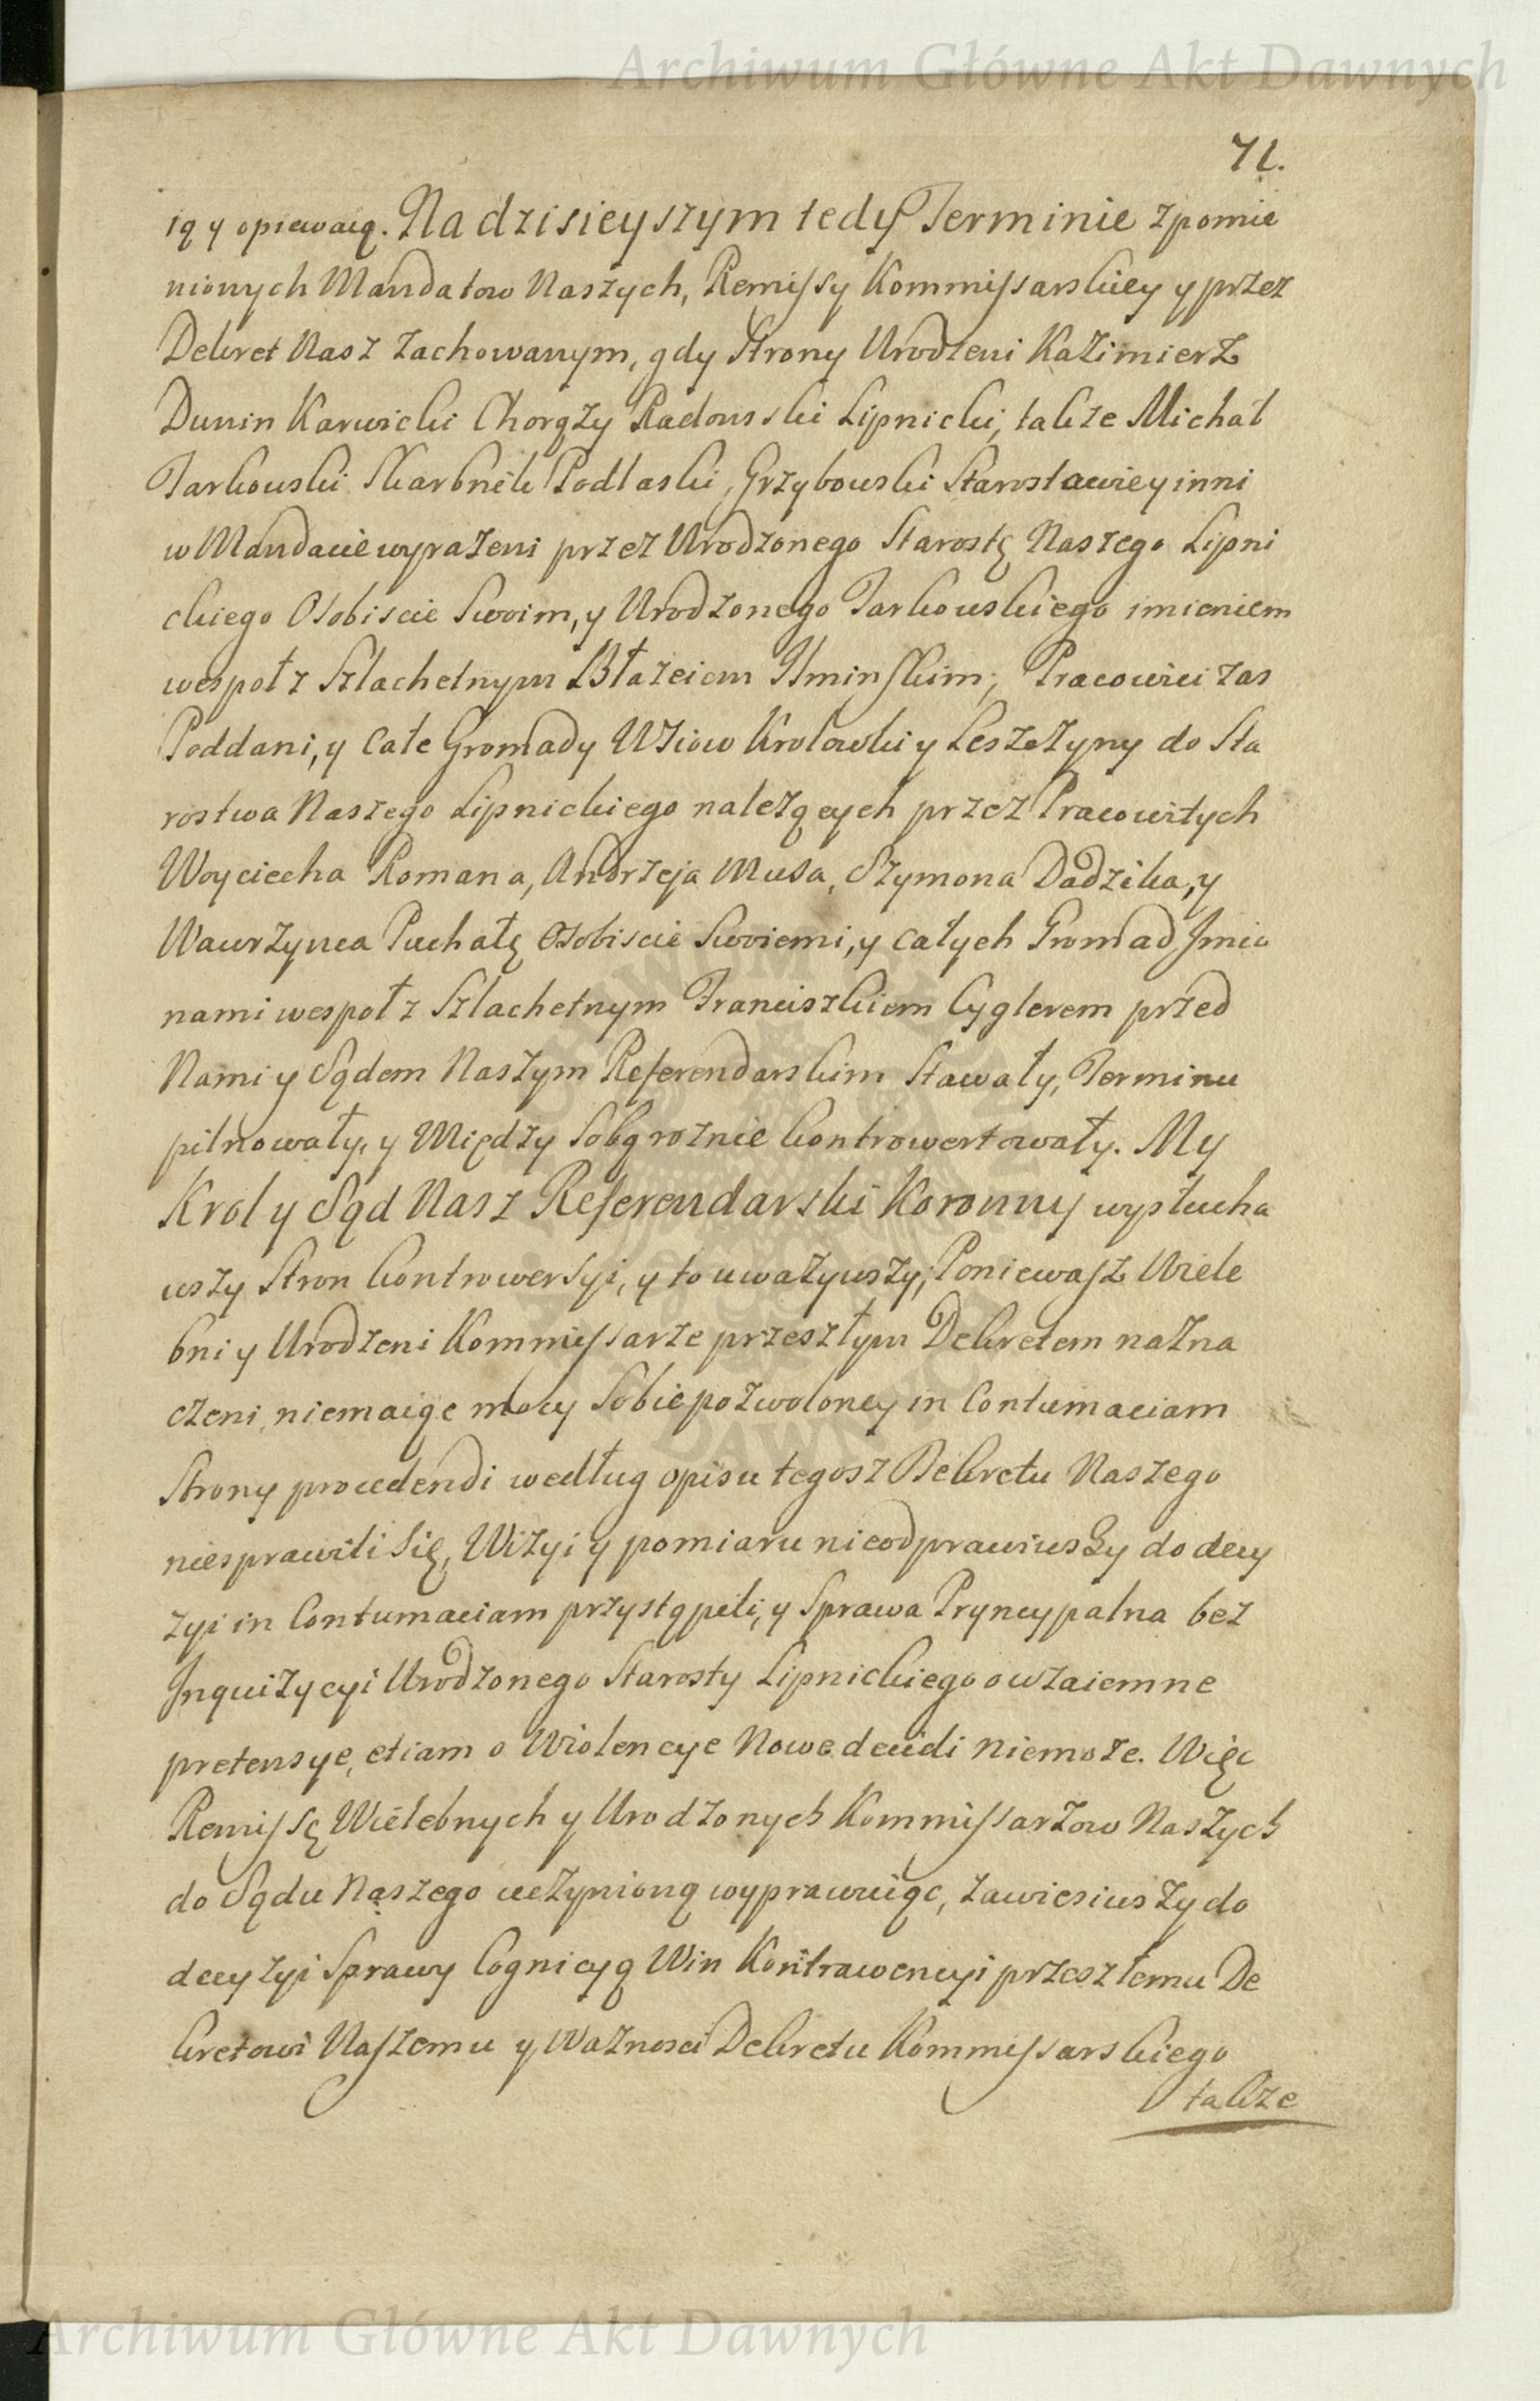 Archiwum Główne Akt Dawnych
71.
ią y opiewaią. Na dzisieyszym tedy Terminie z pomie
nionych Mandatow Naszych, Remissy Kommissarskiey y przez
Dekret Nasz zachowanym, gdy Strony Urodzeni Kazimierz
Dunin Karwicki Chorązy Radomski Lipnicki, takze Michał
Tarkowski Skarbnik Podlaski, Grzybowski Starostowie y inni
w Mandacie wyrazeni przez Urodzonego Starostę Naszego Lipni
ckiego Osobiscie Swoim, y Urodzonego Tarkowskiego imieniem
wespoł z Szlachetnym Błazeiem Ilminskim; Pracowici zas
Poddani, y Całe Gromady Wsiow Krolowki y Leszczyny do Sta
rostwa Naszego Lipnickiego nalezących przez Pracowitych
Woyciecha Romana, Andrzeja Musa, Szymona Dadzika, y
Wawrzynca Puchałę Osobiscie Swoiemi, y całych Gromad Jmio
nami wespoł z Szlachetnym Franciszkiem Cyglerem przed
Nami y Sądem Naszym Referendarskim Stawały, Terminu
pilnowały, y Między Sobą roznie kontrowertowały. My
Krol y Sąd Nasz Referendarski Koronny wysłucha
wszy Stron kontrowersyi, y to uwazywszy; Poniewasz Wiele
bni y Urodzeni Kommissarze przeszłym Dekretem nazna
czeni, niemaiąc mocy Sobie pozwoloney in Contumaciam
Strony procedendi według opisu tegosz Dekretu Naszego
niesprawili Się, Wizyi y pomiaru nieodprawiwszy do decy
zyi in Contumaciam przystąpili, y Sprawa Pryncypalna bez
Jnquizycyi Urodzonego Starosty Lipnickiego o wzaiemne
pretensye, etiam o Wiolencye Nowe decidi niemoze. Więc
Remissę Wielebnych y Urodzonych Kommissarzow Naszych
do Sądu Naszego uczynioną wyprawuiąc, zawiesiwszy do
decyzyi Sprawy Cognicyą Win Kontrawencyi przeszłemu De
kretowi Naszemu y Waznosci Dekretu Kommissarskiego
takze
Archiwum Główne Akt Dawnych